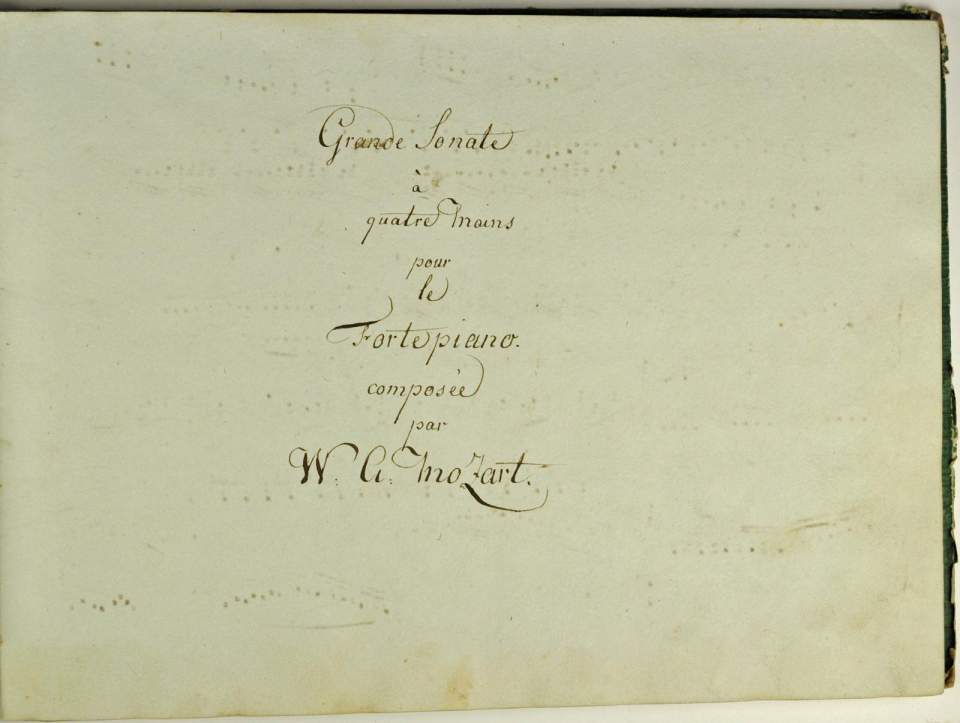 Grande Sonate
à
quatre Mains
pour
le
Fortepiano.
composée
par
W. A. Mozart.